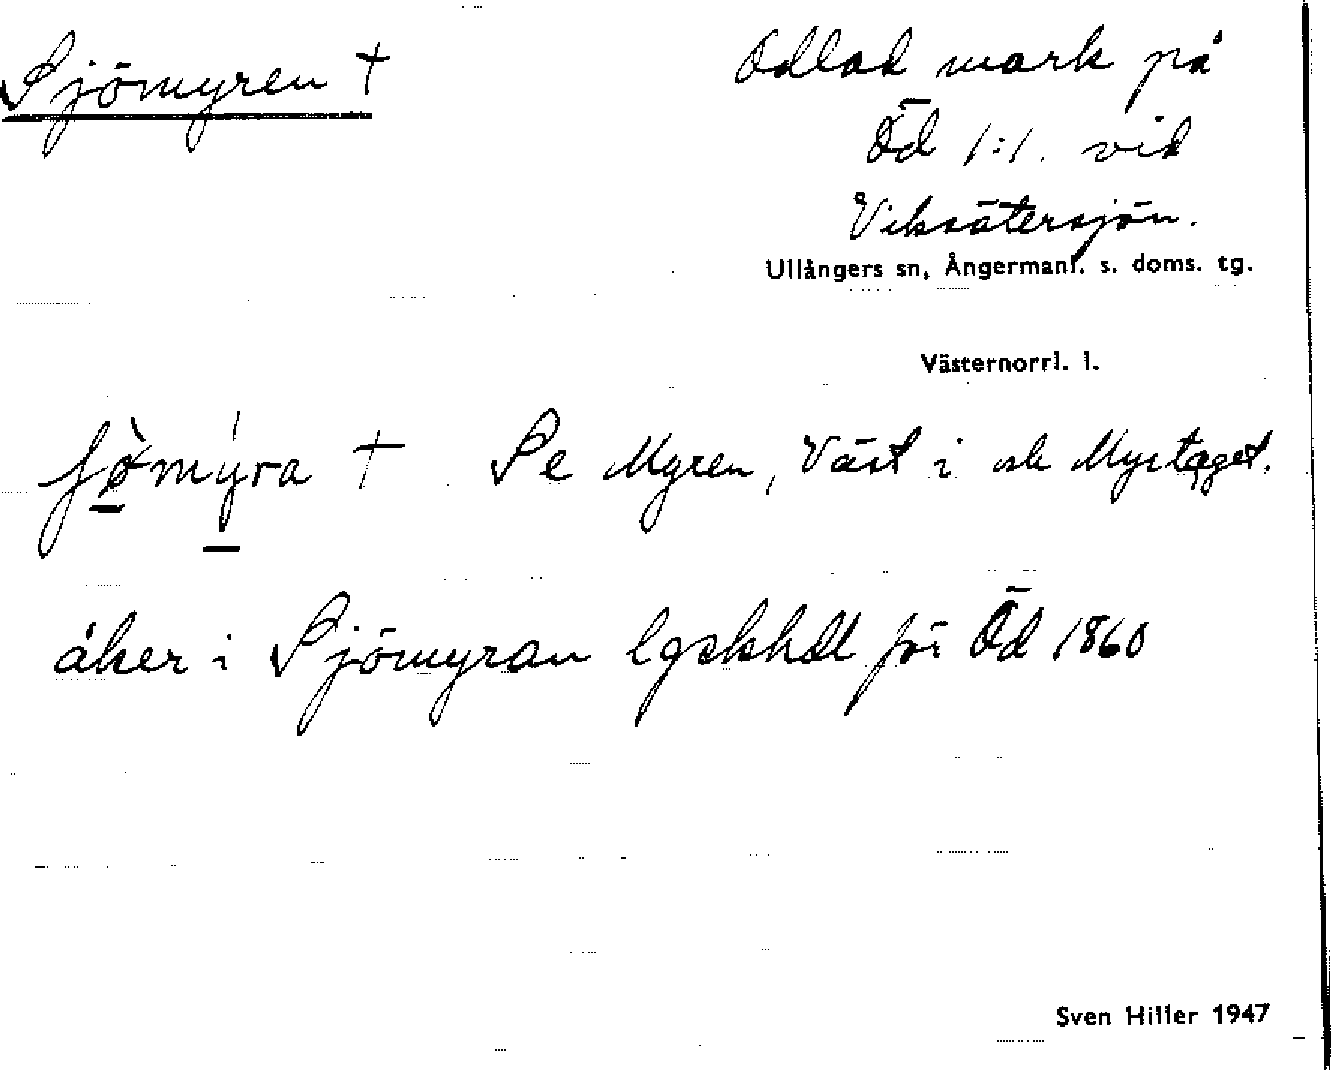 Sjömyren †
Odlad mark på
Öd 1:1. vid
Viksätersjön.
Ullångers sn, Ångermanl. s. doms. tg.
Västernorrl. l.
ʃø̀mýra † Se Myren, Väst i och Myrtaget.
åker i Sjömyran lgskhdl för Öd 1860
Sven Hiller 1947